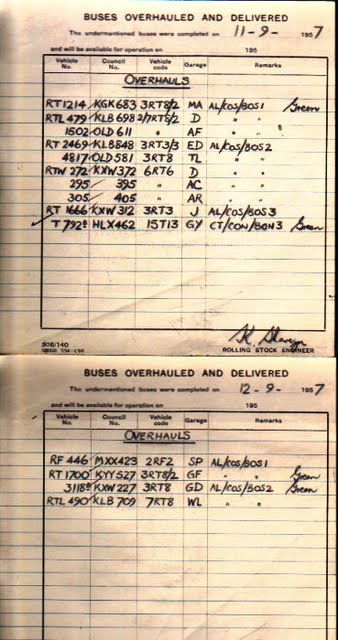 BUSES OVERHAULED AND DELIVERED
The undermentioned buses were completed on 11-9- 1957
and will be available for operation on 195
Vehicle No. Council No. Vehicle code Garage Remarks
OVERHAULS
RT1214 KGK683 3RT8/2 MA AL/COS/BOS1 Green
RTL479 KLB698 2/7RT8/2 D " "
1502 OLD611 " AF " "
RT2469 KLB848 3RT3/3 ED AL/COS/BOS2
4817 OLD581 3RT8 TL " "
RTW272 KXW372 6RT6 D " "
295 395 " AC " "
305 405 " AR " "
RT1666 KXW312 3RT3 J AL/COS/BOS3
T792B HLX462 15T13 GY CT/CON/BON3 Green
308/140
ROLLING STOCK ENGINEER
BUSES OVERHAULED AND DELIVERED
The undermentioned buses were completed on 12-9- 1957
and will be available for operation on 195
Vehicle No. Council No. Vehicle code Garage Remarks
OVERHAULS
RF446 MXX423 2RF2 SP AL/COS/BOS1
RT1700 KYY527 3RT8/2 GF " " Green
3118 KXW227 3RT8 GD AL/COS/BOS2 Green
RTL490 KLB709 7RT8 WL " "